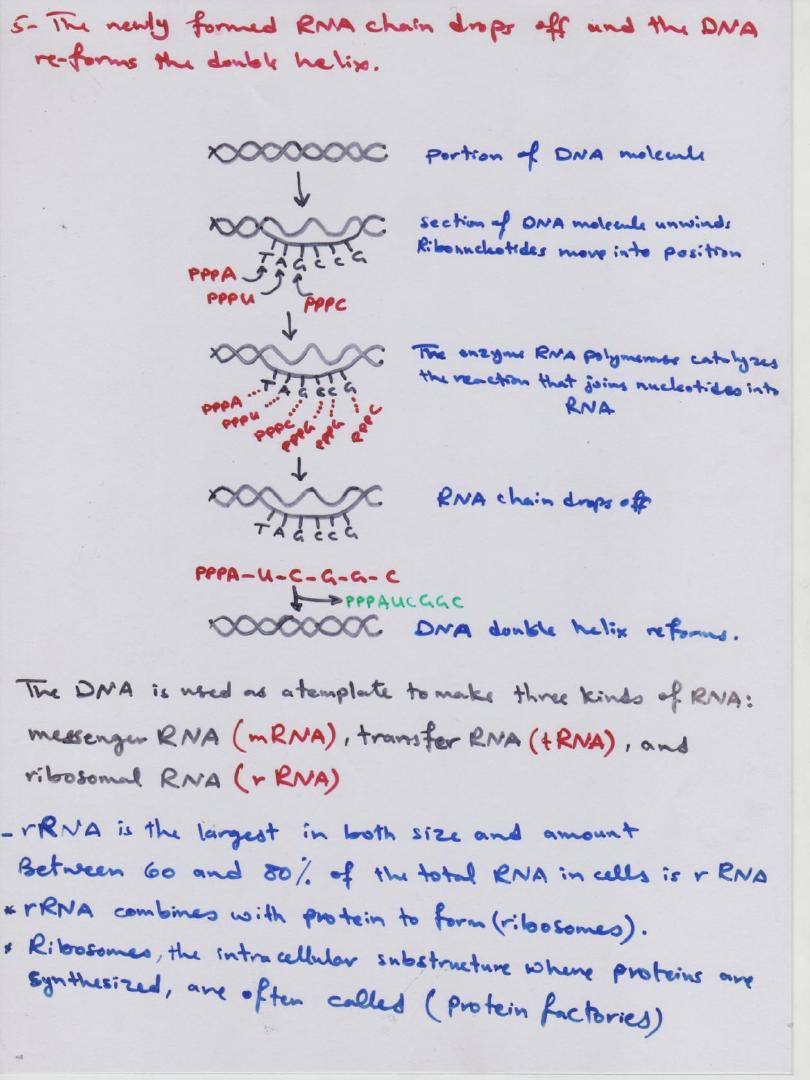 5- The newly formed RNA chain drops off and the DNA
re-forms the double helix.
portion of DNA molecule
section of DNA molecule unwinds
Ribonucleotides move into position
T A G C C G
PPPA
PPPU
PPPC
The enzyme RNA polymerase catalyzes
the reaction that joins nucleotides into
RNA
T A G C C G
PPPA
PPPU
PPPC
PPPG
PPPG
PPPC
RNA chain drops off
T A G C C G
PPPA-U-C-G-G-C
PPPAUCGGC
DNA double helix reforms.
The DNA is used as a template to make three kinds of RNA:
messenger RNA (mRNA), transfer RNA (tRNA), and
ribosomal RNA (r RNA)
- rRNA is the largest in both size and amount
Between 60 and 80% of the total RNA in cells is r RNA
* rRNA combines with protein to form (ribosomes).
* Ribosomes, the intracellular substructure where proteins are
synthesized, are often called (protein factories)